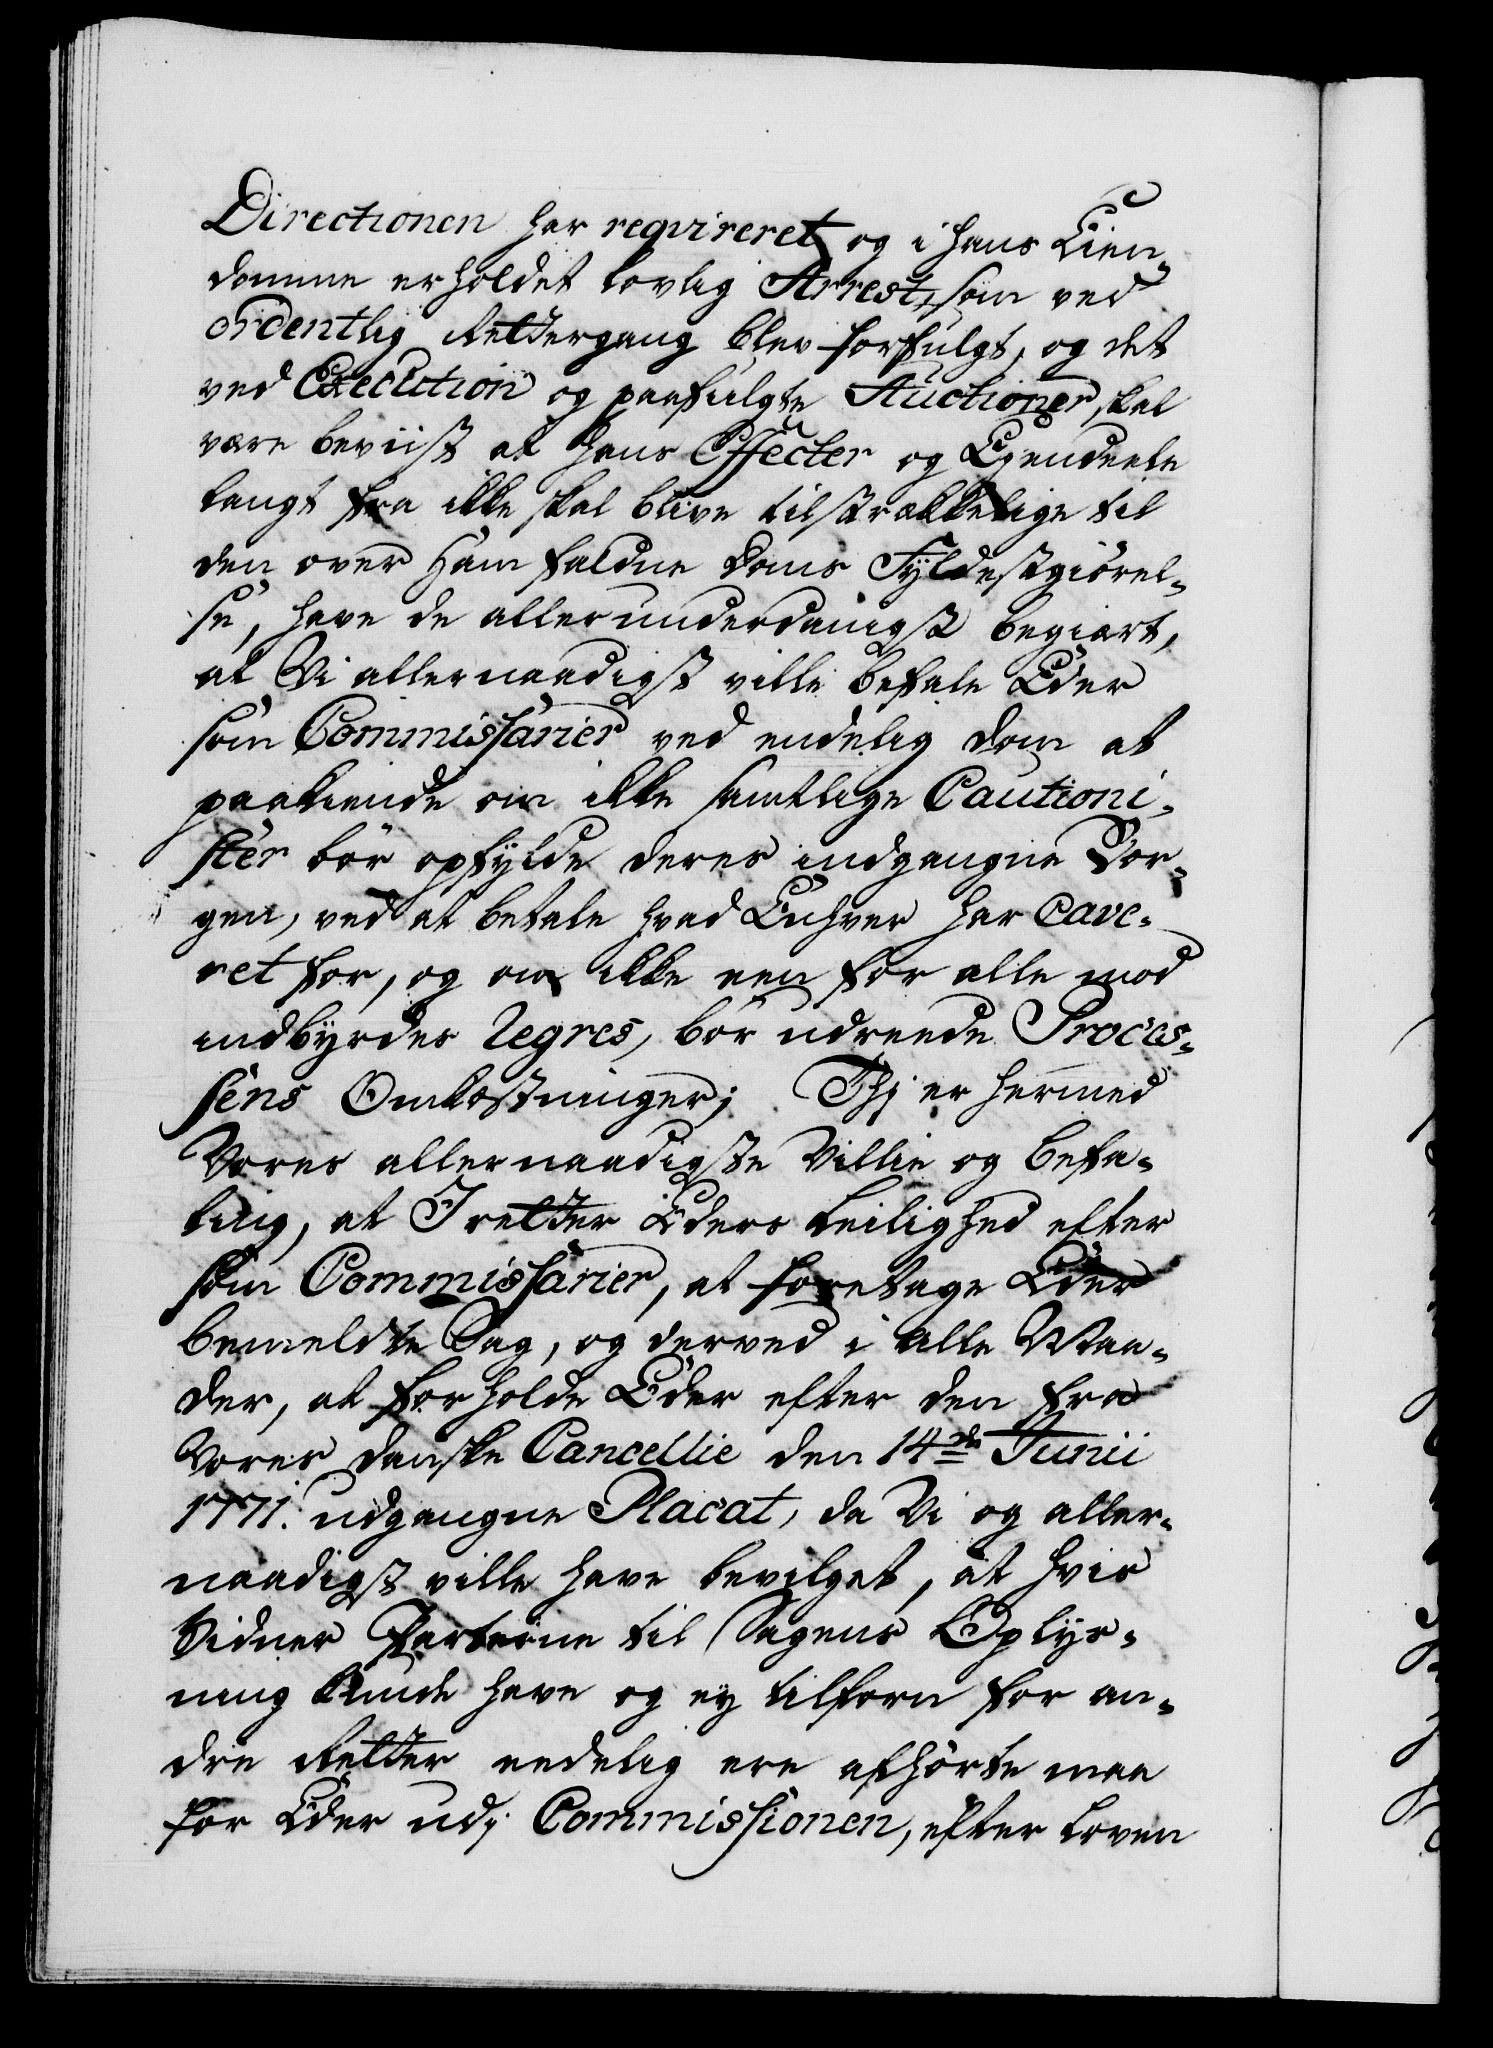 Directionen har reqvireret og i hans Eien¬
domme erholdet lovlig Arrest, som ved
ordentlig Rettergang blev forfulgt, og det
ved Execution og paafulgte Auctioner skal
være beviist at hans Effecter og Ejendeele
langt fra ikke skal blive tilstrækkelige til
den over Ham faldne Doms Fyldestgiørel¬
se, have de allerunderdanigst begiært,
at Vi allernaadigst ville befale Eder
som Commissarier ved endelig Dom at
paakiende om ikke samtlige Cautioni¬
ster bør opfylde deres indgangne For¬
gen, ved at betale hvad Enhver har cave¬
ret for, og om ikke een for alle mod
indbyrdes Regres, bør udreede Proces¬
sens Omkostninger; Thj er hermed
Vores allernaadigste Villie og Befa¬
ling, at I retter Eders Leilighed efter
som Commissarier, at foretage Eder
bemeldte Sag, og derved i alle Maa¬
der, at forholde Eder efter den fra
Vores danske Cancellie den 14de Junii
1771. udgangne Placat, da Vi og aller¬
naadigst ville have bevilget, at hvis
Vidner Parterne til Sagens Oplys¬
ning kunde have og ey tilforn for an¬
dre Retter eedelig ere afhørte maa
for Eder udj Commissionen, efter Loven